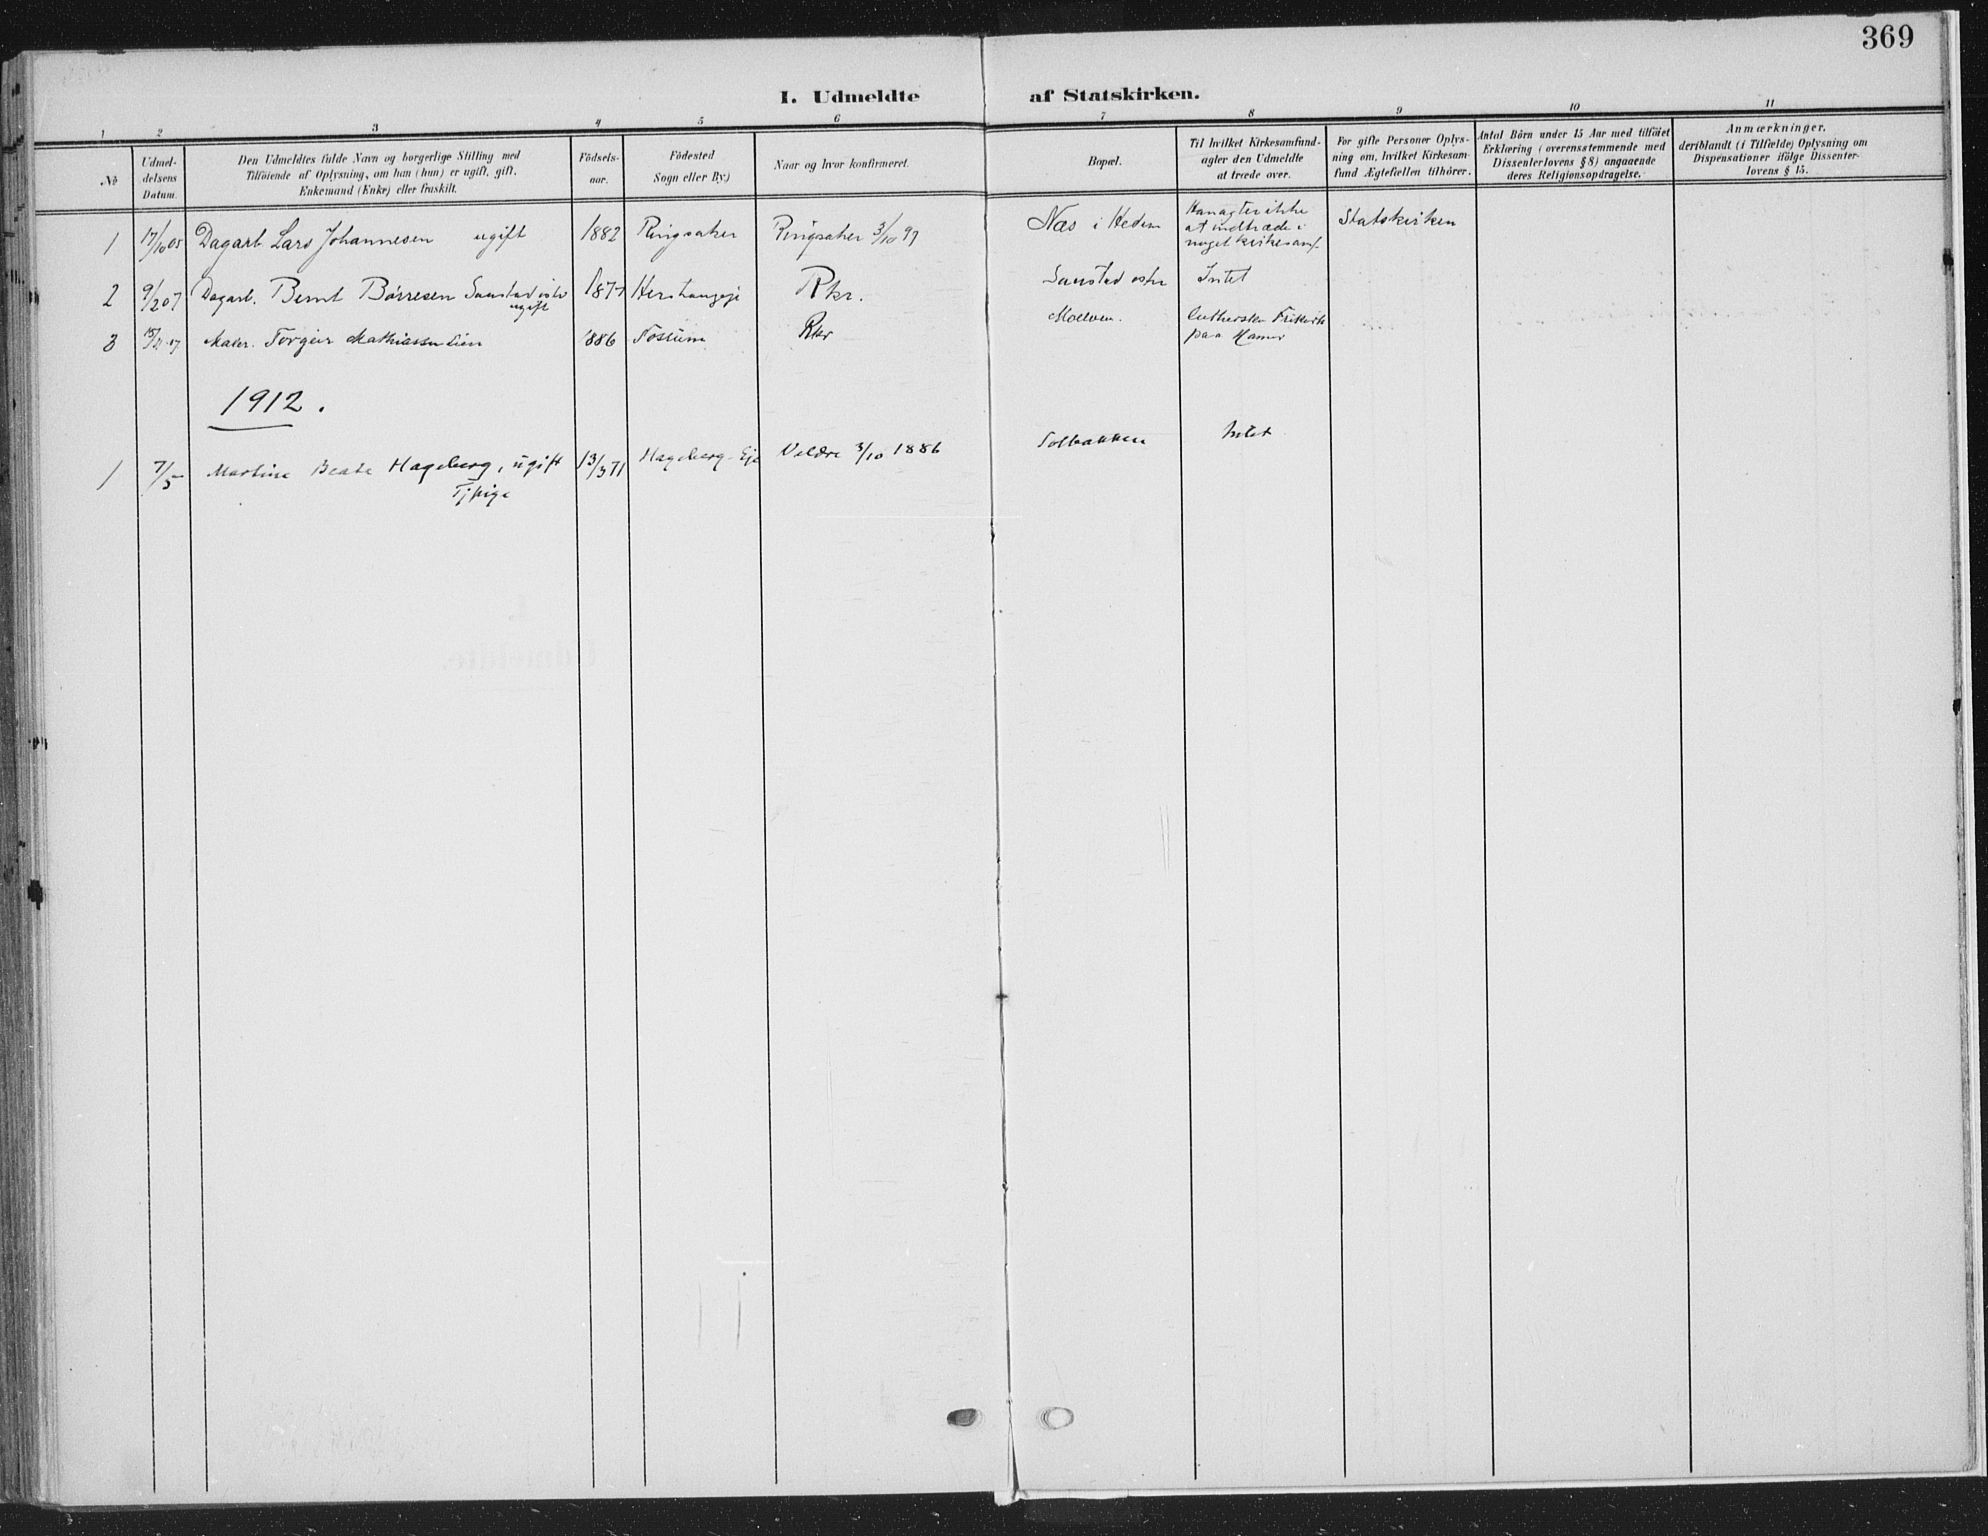 369
I. Udmeldte af Statskirken.
1 2 3 4 5 6 7 8 9 10 11
No
Udmel-
delsens
Datum.
Den Udmeldtes fulde Navn og borgerlige Stilling med
Tilføiende af Oplysning, om han (hun) er ugift, gift,
Enkemand (Enke) eller fraskilt.
Fødsels-
aar.
Fødested
Sogn eller By.)
Naar og hvor konfirmeret.
Bopæl.
Til hvilket Kirkesamfund-
agter den Udmeldte
at træde over.
For gifte Personer Oplys-
ning om, hvilket Kirkesam-
fund Ægtefællen tilhører.
Antal Børn under 15 Aar med tilføiet
Erklæring (overensstemmende med
Dissenterlovens § 8) angaaende
deres Religionsopdragelse.
Anmærkninger,
deriblandt (i Tilfælde) Oplysning om
Dispensationer ifølge Dissenter-
lovens § 15.
1 17/10 05 Dagarb. Lars Johannesen ugift 1882 Ringsaker Ringsaker 3/10 97 Næs i Hedem Han agter ikke
at indtræde i
noget kirkesamf. Statskirken
2 9/2 07 Dagarb. Bernt Børresen 1877 Rkr. Intet
ugift
3 Maler. Torgeir Mathiassen Lien 1886 Fossum Rkr Moelven. luthersk Frikirk
paa Hamar
1912.
1 7/5 Martine Beate Hageberg, ugift 13/3 71 Hageberg-Eje Veldre 3/10 1886 Solbakken Intet
Tjpige